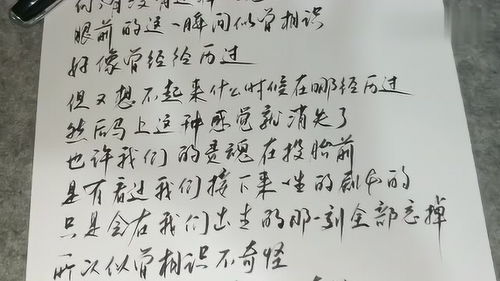 眼前的这一瞬间似曾相识
好像曾经经历过
但又想不起来什么时候在哪经历过
然后马上这种感觉就消失了
也许我们的灵魂在投胎前
是有看过我们接下来一生的剧本的
只是会在我们出生的那一刻全部忘掉
所以似曾相识不奇怪